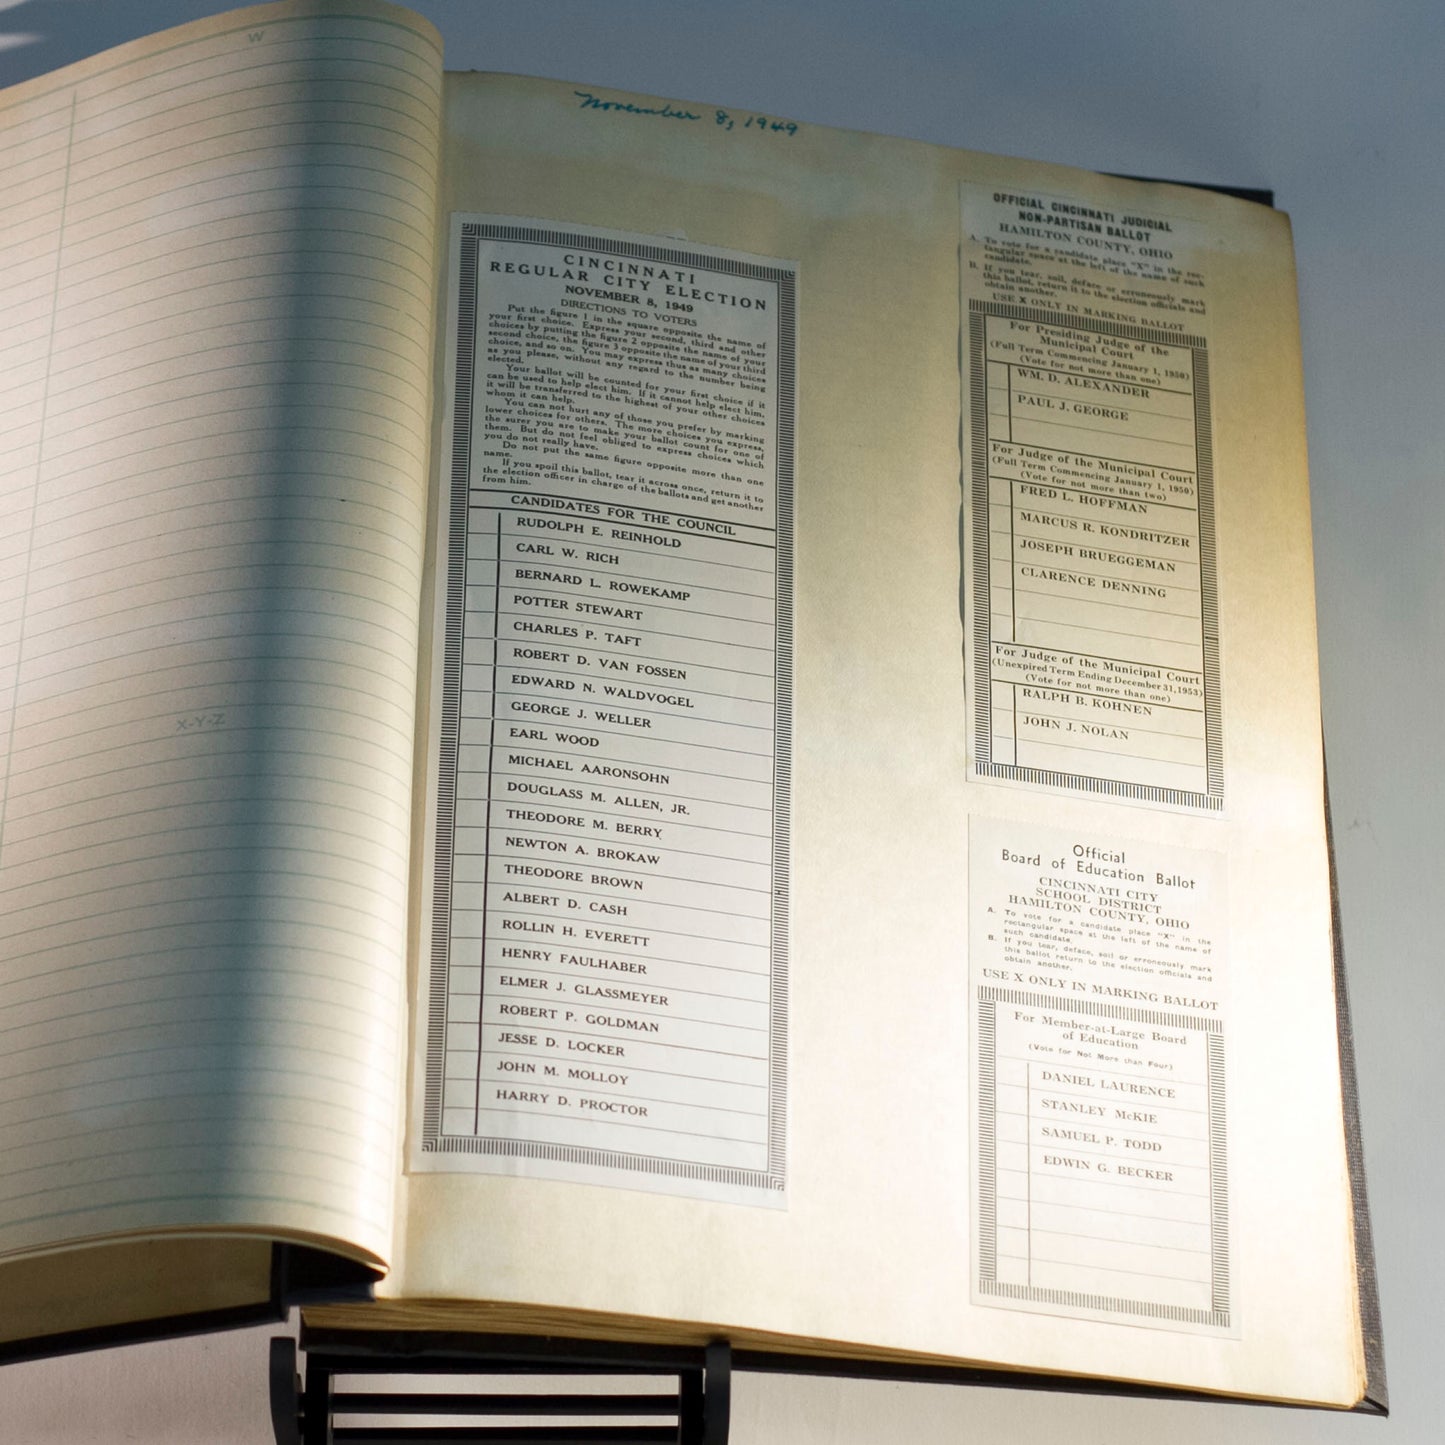 W
X-Y-Z
November 8, 1949
CINCINNATI
REGULAR CITY ELECTION
NOVEMBER 8, 1949
DIRECTIONS TO VOTERS
Put the figure 1 in the square opposite the name of
your first choice. Express your second, third and other
choices by putting the figure 2 opposite the name of your
second choice, the figure 3 opposite the name of your third
choice, and so on. You may express thus as many choices
as you please, without any regard to the number being
elected.
Your ballot will be counted for your first choice if it
can be used to help elect him. If it cannot help elect him,
it will be transferred to the highest of your other choices
whom it can help.
You can not hurt any of those you prefer by marking
lower choices for others. The more choices you express,
the surer you are to make your ballot count for one of
them. But do not feel obliged to express choices which
you do not really have.
Do not put the same figure opposite more than one
name.
If you spoil this ballot, tear it across once, return it to
the election officer in charge of the ballots and get another
from him.
CANDIDATES FOR THE COUNCIL
RUDOLPH E. REINHOLD
CARL W. RICH
BERNARD L. ROWEKAMP
POTTER STEWART
CHARLES P. TAFT
ROBERT D. VAN FOSSEN
EDWARD N. WALDVOGEL
GEORGE J. WELLER
EARL WOOD
MICHAEL AARONSOHN
DOUGLASS M. ALLEN, JR.
THEODORE M. BERRY
NEWTON A. BROKAW
THEODORE BROWN
ALBERT D. CASH
ROLLIN H. EVERETT
HENRY FAULHABER
ELMER J. GLASSMEYER
ROBERT P. GOLDMAN
JESSE D. LOCKER
JOHN M. MOLLOY
HARRY D. PROCTOR
OFFICIAL CINCINNATI JUDICIAL
NON-PARTISAN BALLOT
HAMILTON COUNTY, OHIO
A. To vote for a candidate place "X" in the rec-
tangular space at the left of the name of such
candidate.
B. If you tear, soil, deface or erroneously mark
this ballot, return it to the election officials and
obtain another.
USE X ONLY IN MARKING BALLOT
For Presiding Judge of the
Municipal Court
(Full Term Commencing January 1, 1950)
(Vote for not more than one)
WM. D. ALEXANDER
PAUL J. GEORGE
For Judge of the Municipal Court
(Full Term Commencing January 1, 1950)
(Vote for not more than two)
FRED L. HOFFMAN
MARCUS R. KONDRITZER
JOSEPH BRUEGGEMAN
CLARENCE DENNING
For Judge of the Municipal Court
(Unexpired Term Ending December 31, 1953)
(Vote for not more than one)
RALPH B. KOHNEN
JOHN J. NOLAN
Official
Board of Education Ballot
CINCINNATI CITY
SCHOOL DISTRICT
HAMILTON COUNTY, OHIO
A. To vote for a candidate place "X" in the
rectangular space at the left of the name of
such candidate.
B. If you tear, deface, soil or erroneously mark
this ballot return to the election officials and
obtain another.
USE X ONLY IN MARKING BALLOT
For Member-at-Large Board
of Education
(Vote for Not More than Four)
DANIEL LAURENCE
STANLEY McKIE
SAMUEL P. TODD
EDWIN G. BECKER